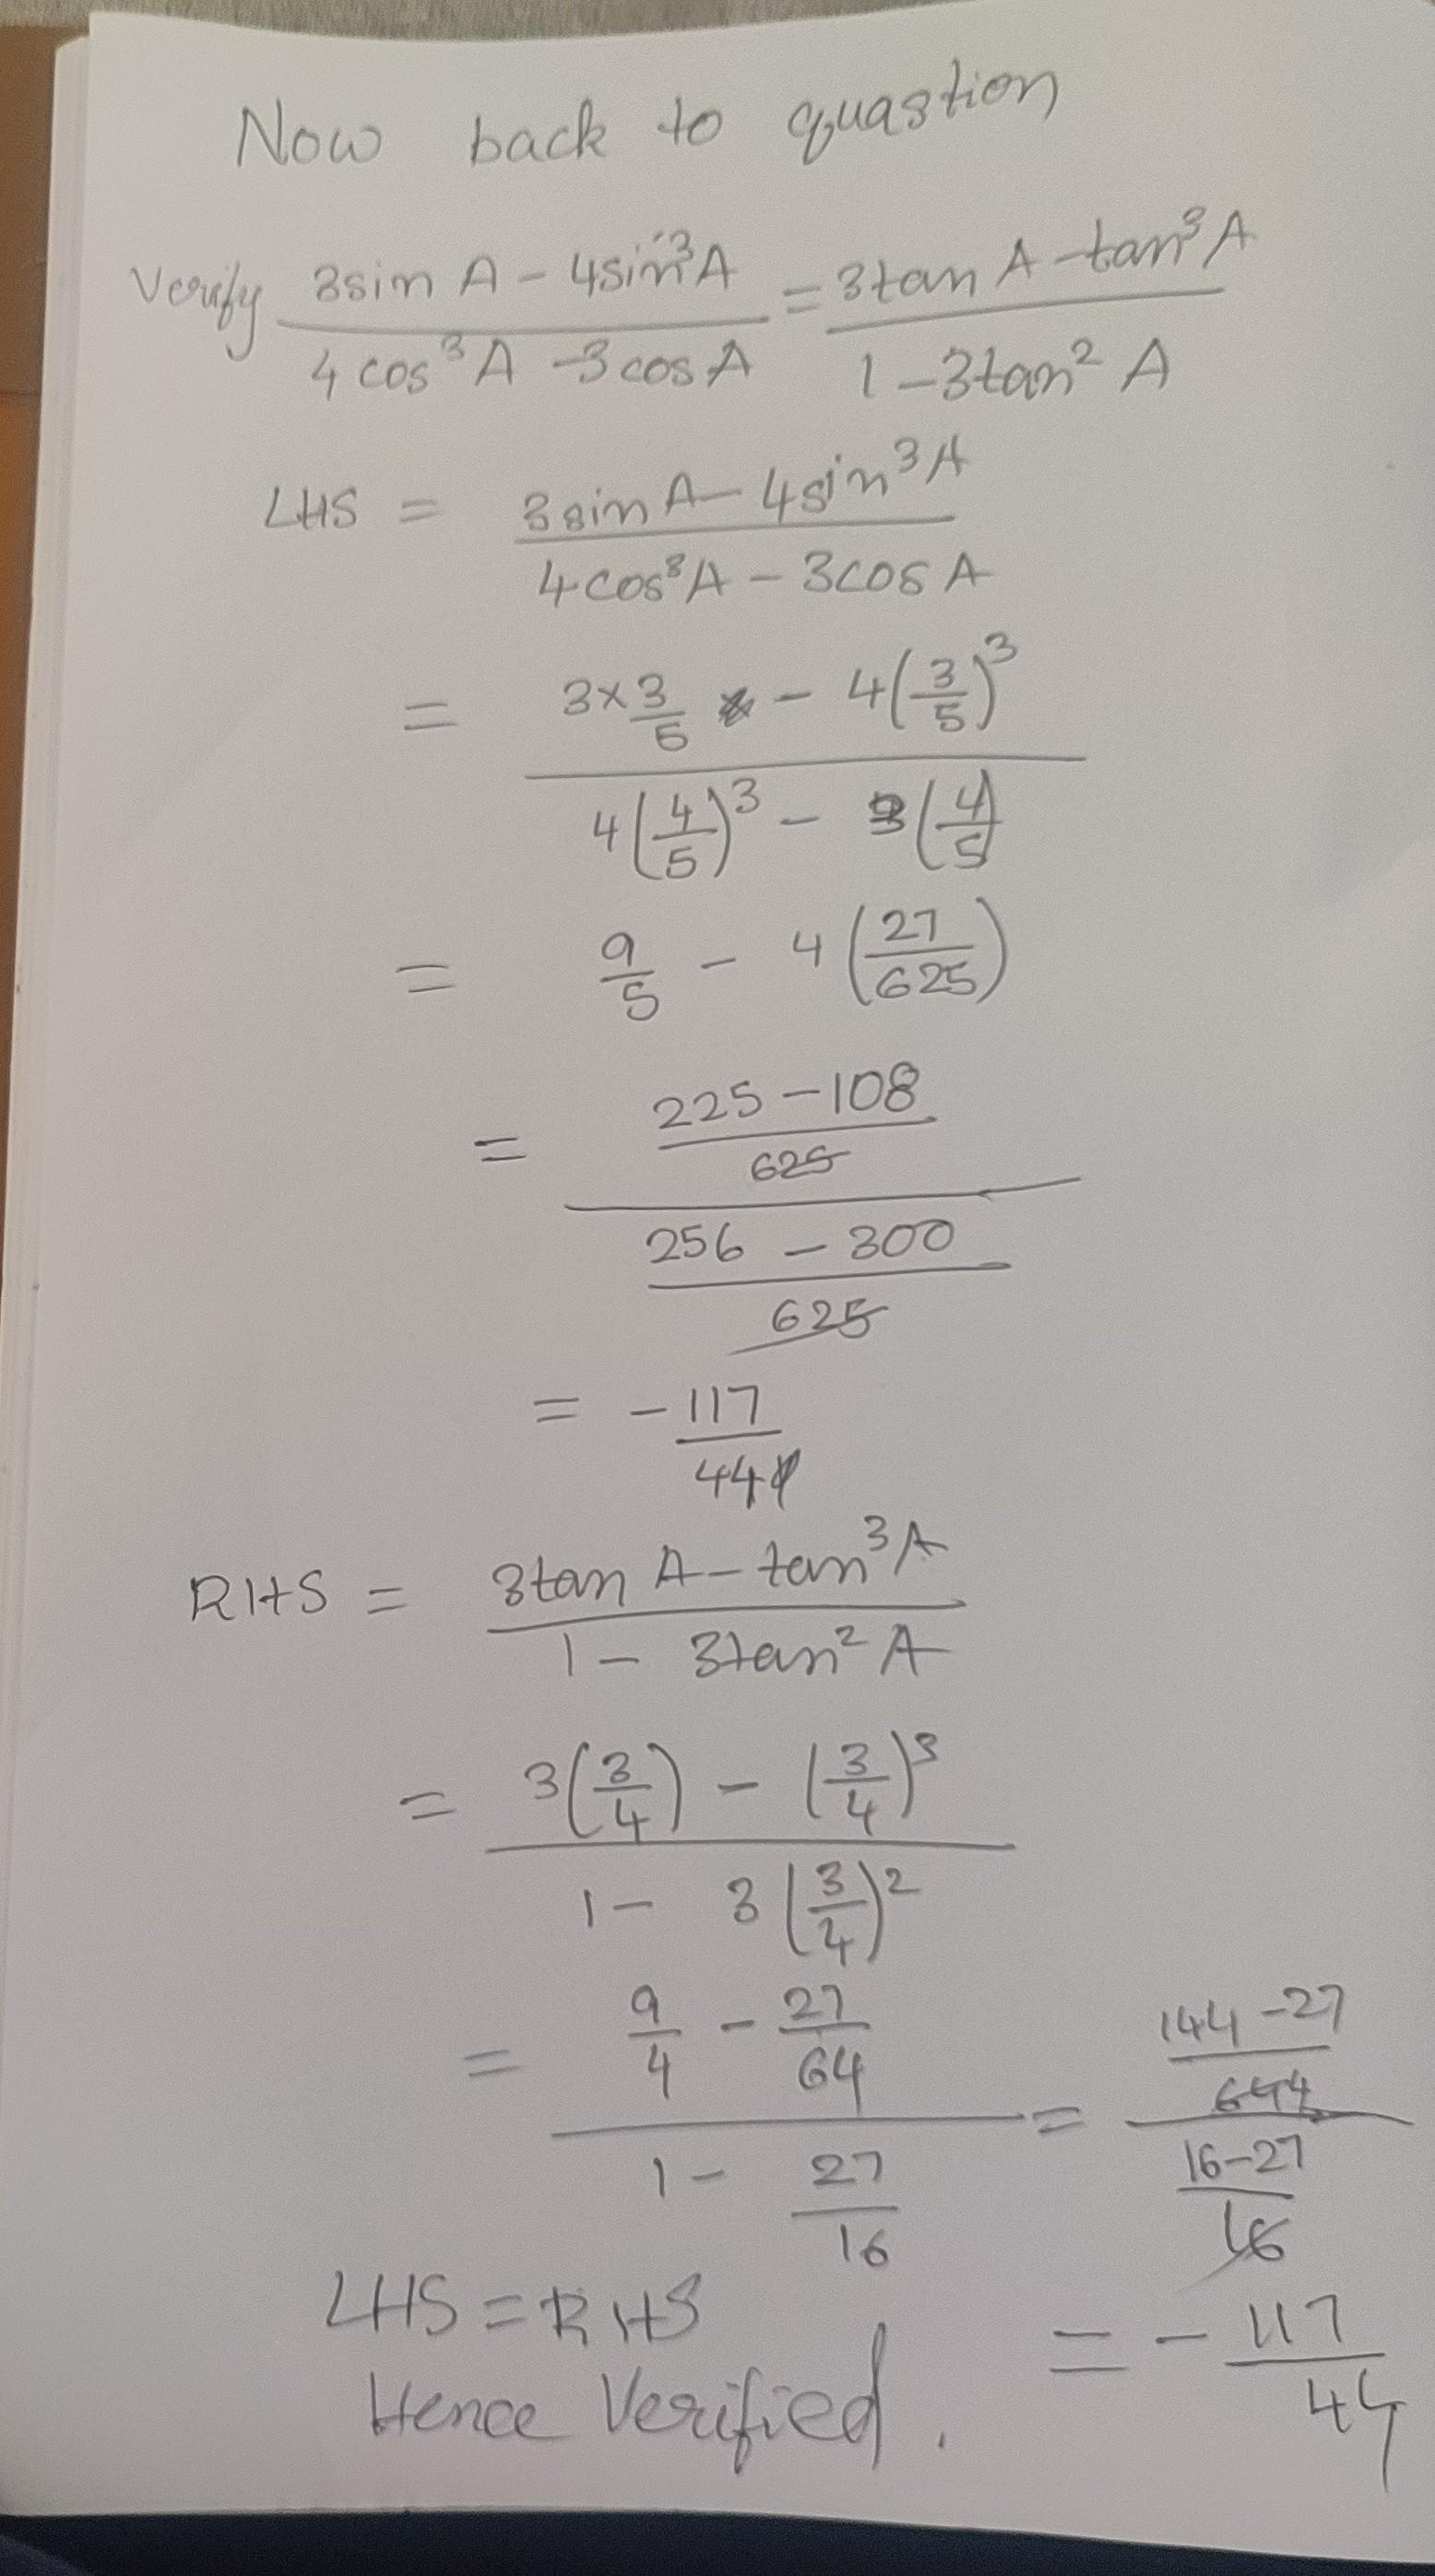 Now back to quastion
Verify (3sin A - 4sin³A)/(4cos³A - 3cosA) = (3tan A - tan³A)/(1 - 3tan² A)
LHS = (3sin A - 4sin³A)/(4cos³A - 3cos A)
= (3×3/5 - 4(3/5)³)/(4(4/5)³ - 3(4/5))
= 9/5 - 4(27/625)
= ((225 - 108)/625)/((256 - 300)/625)
= -117/44
RHS = (3tan A - tan³A)/(1 - 3tan² A)
= (3(3/4) - (3/4)³)/(1 - 3(3/4)²)
= (9/4 - 27/64)/(1 - 27/16) = ((144 - 27)/644)/((16 - 27)/16)
LHS = RHS
= -117/44
Hence Verified.